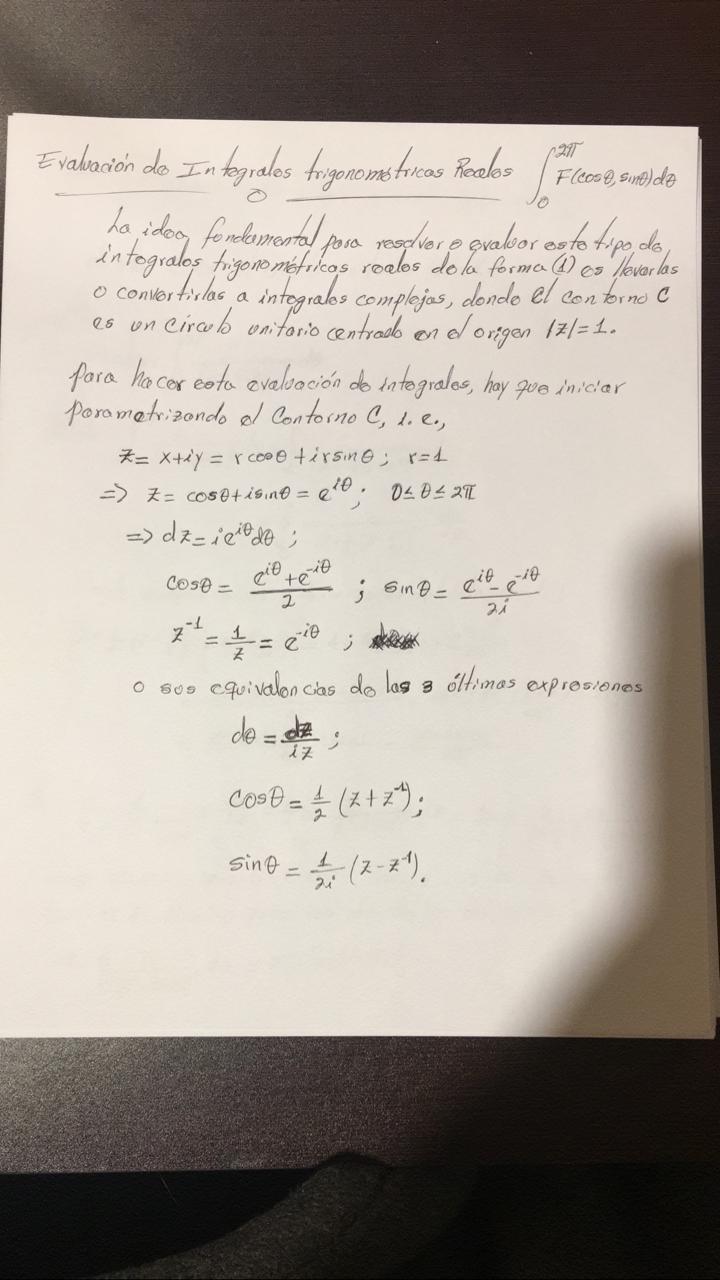 Evaluación de Integrales trigonométricas Reales ∫₀^{2π} F(cosθ, sinθ)dθ
La idea fundamental para resolver o evaluar este tipo de
integrales trigonométricas reales de la forma (1) es llevarlas
o convertirlas a integrales complejas, donde el contorno C
es un círculo unitario centrado en el origen |z|=1.
Para hacer esta evaluación de integrales, hay que iniciar
parametrizando el Contorno C, i.e.,
z = x+iy = r cosθ + i r sinθ ; r=1
=> z = cosθ+isinθ = e^{iθ} ; 0≤θ≤2π
=> dz = ie^{iθ}dθ ;
cosθ = (e^{iθ}+e^{-iθ})/2 ; sinθ = (e^{iθ}-e^{-iθ})/2i
z^{-1} = 1/z = e^{-iθ} ;
o sus equivalencias de las 3 últimas expresiones
dθ = dz/iz ;
cosθ = 1/2 (z+z^{-1}) ;
sinθ = 1/2i (z-z^{-1}).